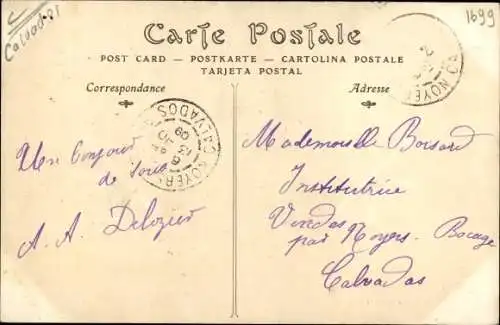 Calvados
1699
Carte Postale
POST CARD — POSTKARTE — CARTOLINA POSTALE
TARJETA POSTAL
Correspondance
Adresse
NOYERS
CALVADOS
13
09
NOYERS
Un bonjour
de tous
A. A. Delozier
Mademoiselle Boisard
Institutrice
Vendes
par Noyers-Bocage
Calvados